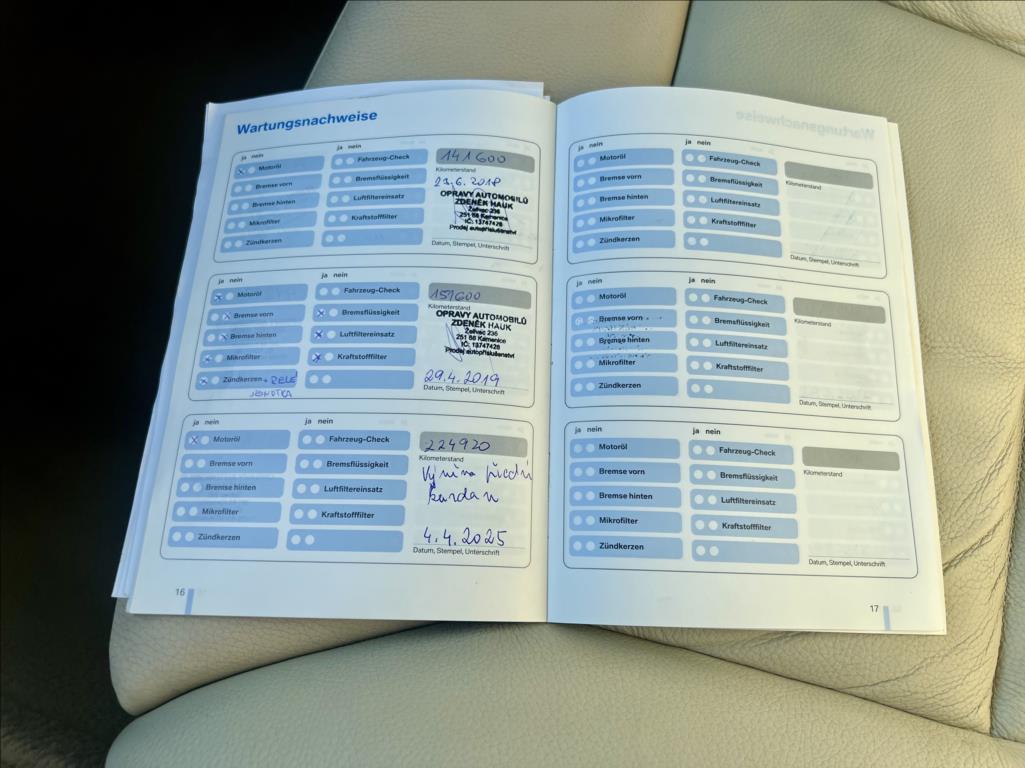 Wartungsnachweise
ja nein
Motoröl
Bremse vorn
Bremse hinten
Mikrofilter
Zündkerzen
Fahrzeug-Check
Bremsflüssigkeit
Luftfiltereinsatz
Kraftstofffilter
141600
Kilometerstand
21.6.2018
OPRAVY AUTOMOBILŮ
ZDENĚK HAUK
Želivec 236
251 68 Kamenice
IČ: 13747428
Prodej autopříslušenství
Datum, Stempel, Unterschrift
ja nein
ja nein
Motoröl
Bremse vorn
Bremse hinten
Mikrofilter
Zündkerzen + RELÉ
JEDNOTKA
Fahrzeug-Check
Bremsflüssigkeit
Luftfiltereinsatz
Kraftstofffilter
151600
Kilometerstand
OPRAVY AUTOMOBILŮ
ZDENĚK HAUK
Želivec 236
251 68 Kamenice
IČ: 13747428
Prodej autopříslušenství
29.4.2019
Datum, Stempel, Unterschrift
ja nein
ja nein
Motoröl
Bremse vorn
Bremse hinten
Mikrofilter
Zündkerzen
Fahrzeug-Check
Bremsflüssigkeit
Luftfiltereinsatz
Kraftstofffilter
224920
Kilometerstand
Výměna přední
kardan
4.4.2025
Datum, Stempel, Unterschrift
16
ja nein
ja nein
Motoröl
Bremse vorn
Bremse hinten
Mikrofilter
Zündkerzen
Fahrzeug-Check
Bremsflüssigkeit
Luftfiltereinsatz
Kraftstofffilter
Kilometerstand
Datum, Stempel, Unterschrift
ja nein
ja nein
Motoröl
Bremse vorn
Bremse hinten
Mikrofilter
Zündkerzen
Fahrzeug-Check
Bremsflüssigkeit
Luftfiltereinsatz
Kraftstofffilter
Kilometerstand
Datum, Stempel, Unterschrift
ja nein
ja nein
Motoröl
Bremse vorn
Bremse hinten
Mikrofilter
Zündkerzen
Fahrzeug-Check
Bremsflüssigkeit
Luftfiltereinsatz
Kraftstofffilter
Kilometerstand
Datum, Stempel, Unterschrift
17